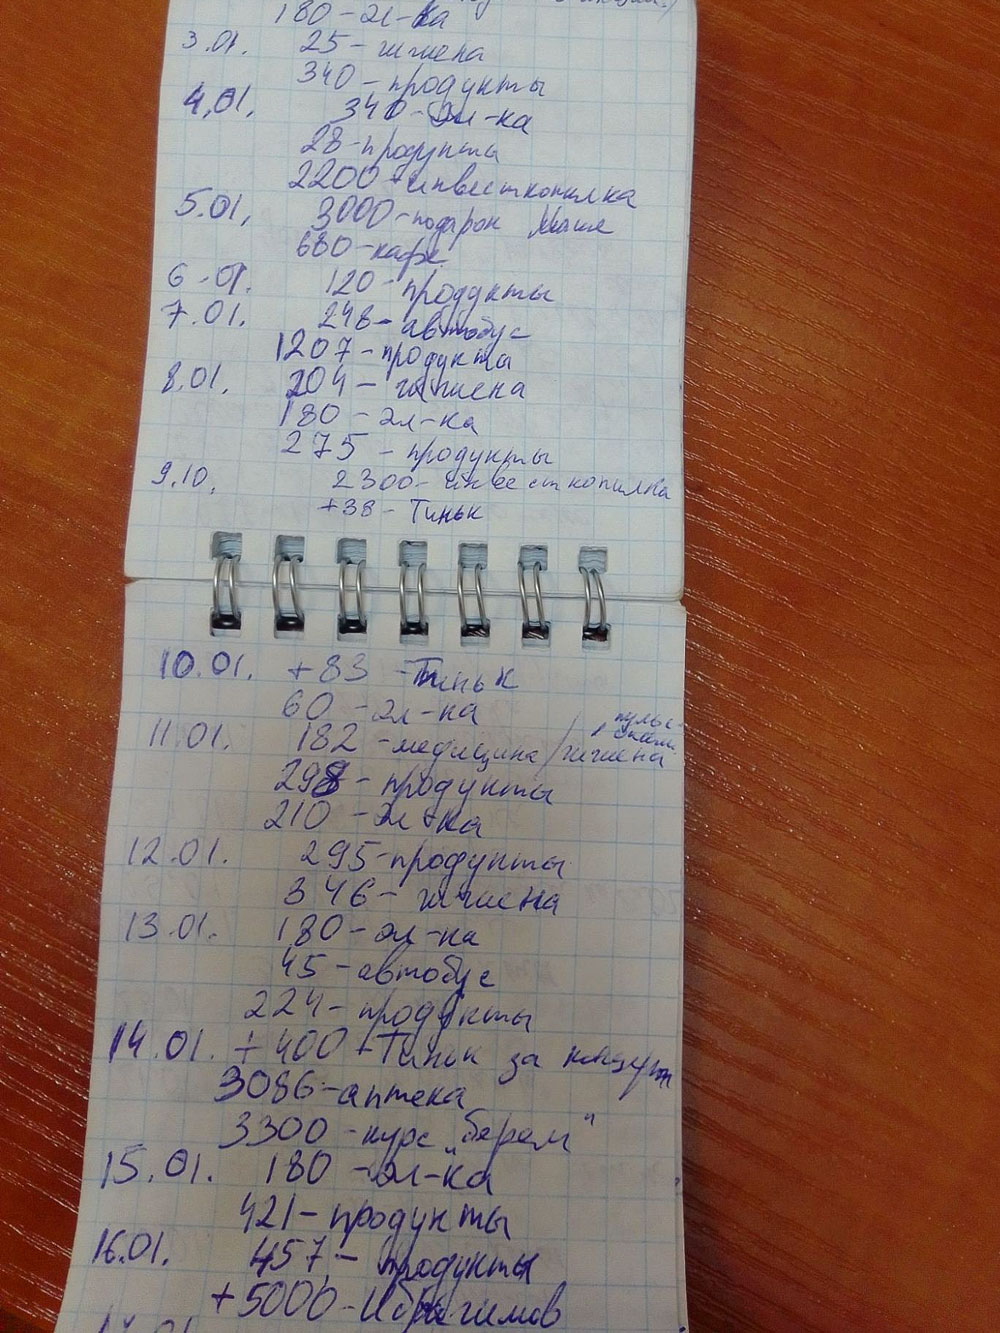 180 - эл-ка
3.01. 25 - гигиена
340 - продукты
4.01. 340 - эл-ка
28 - продукты
2200 - инвесткопилка
5.01. 3000 - подарок Маше
680 - кафе
6.01. 120 - продукты
7.01. 248 - автобус
1207 - продукты
8.01. 204 - гигиена
180 - эл-ка
275 - продукты
9.10. 2300 - инвесткопилка
+38 - Тиньк
10.01. +83 - Тиньк
60 - эл-ка
11.01. 182 - медицина / гигиена
298 - продукты
210 - эл-ка
12.01. 295 - продукты
346 - гигиена
13.01. 180 - эл-ка
45 - автобус
224 - продукты
14.01. +400 + Тиньк за
3086 - аптека
3300 - курс "
15.01. 180 - эл-ка
421 - продукты
16.01. 457 - продукты
+5000 - Ибрагимов